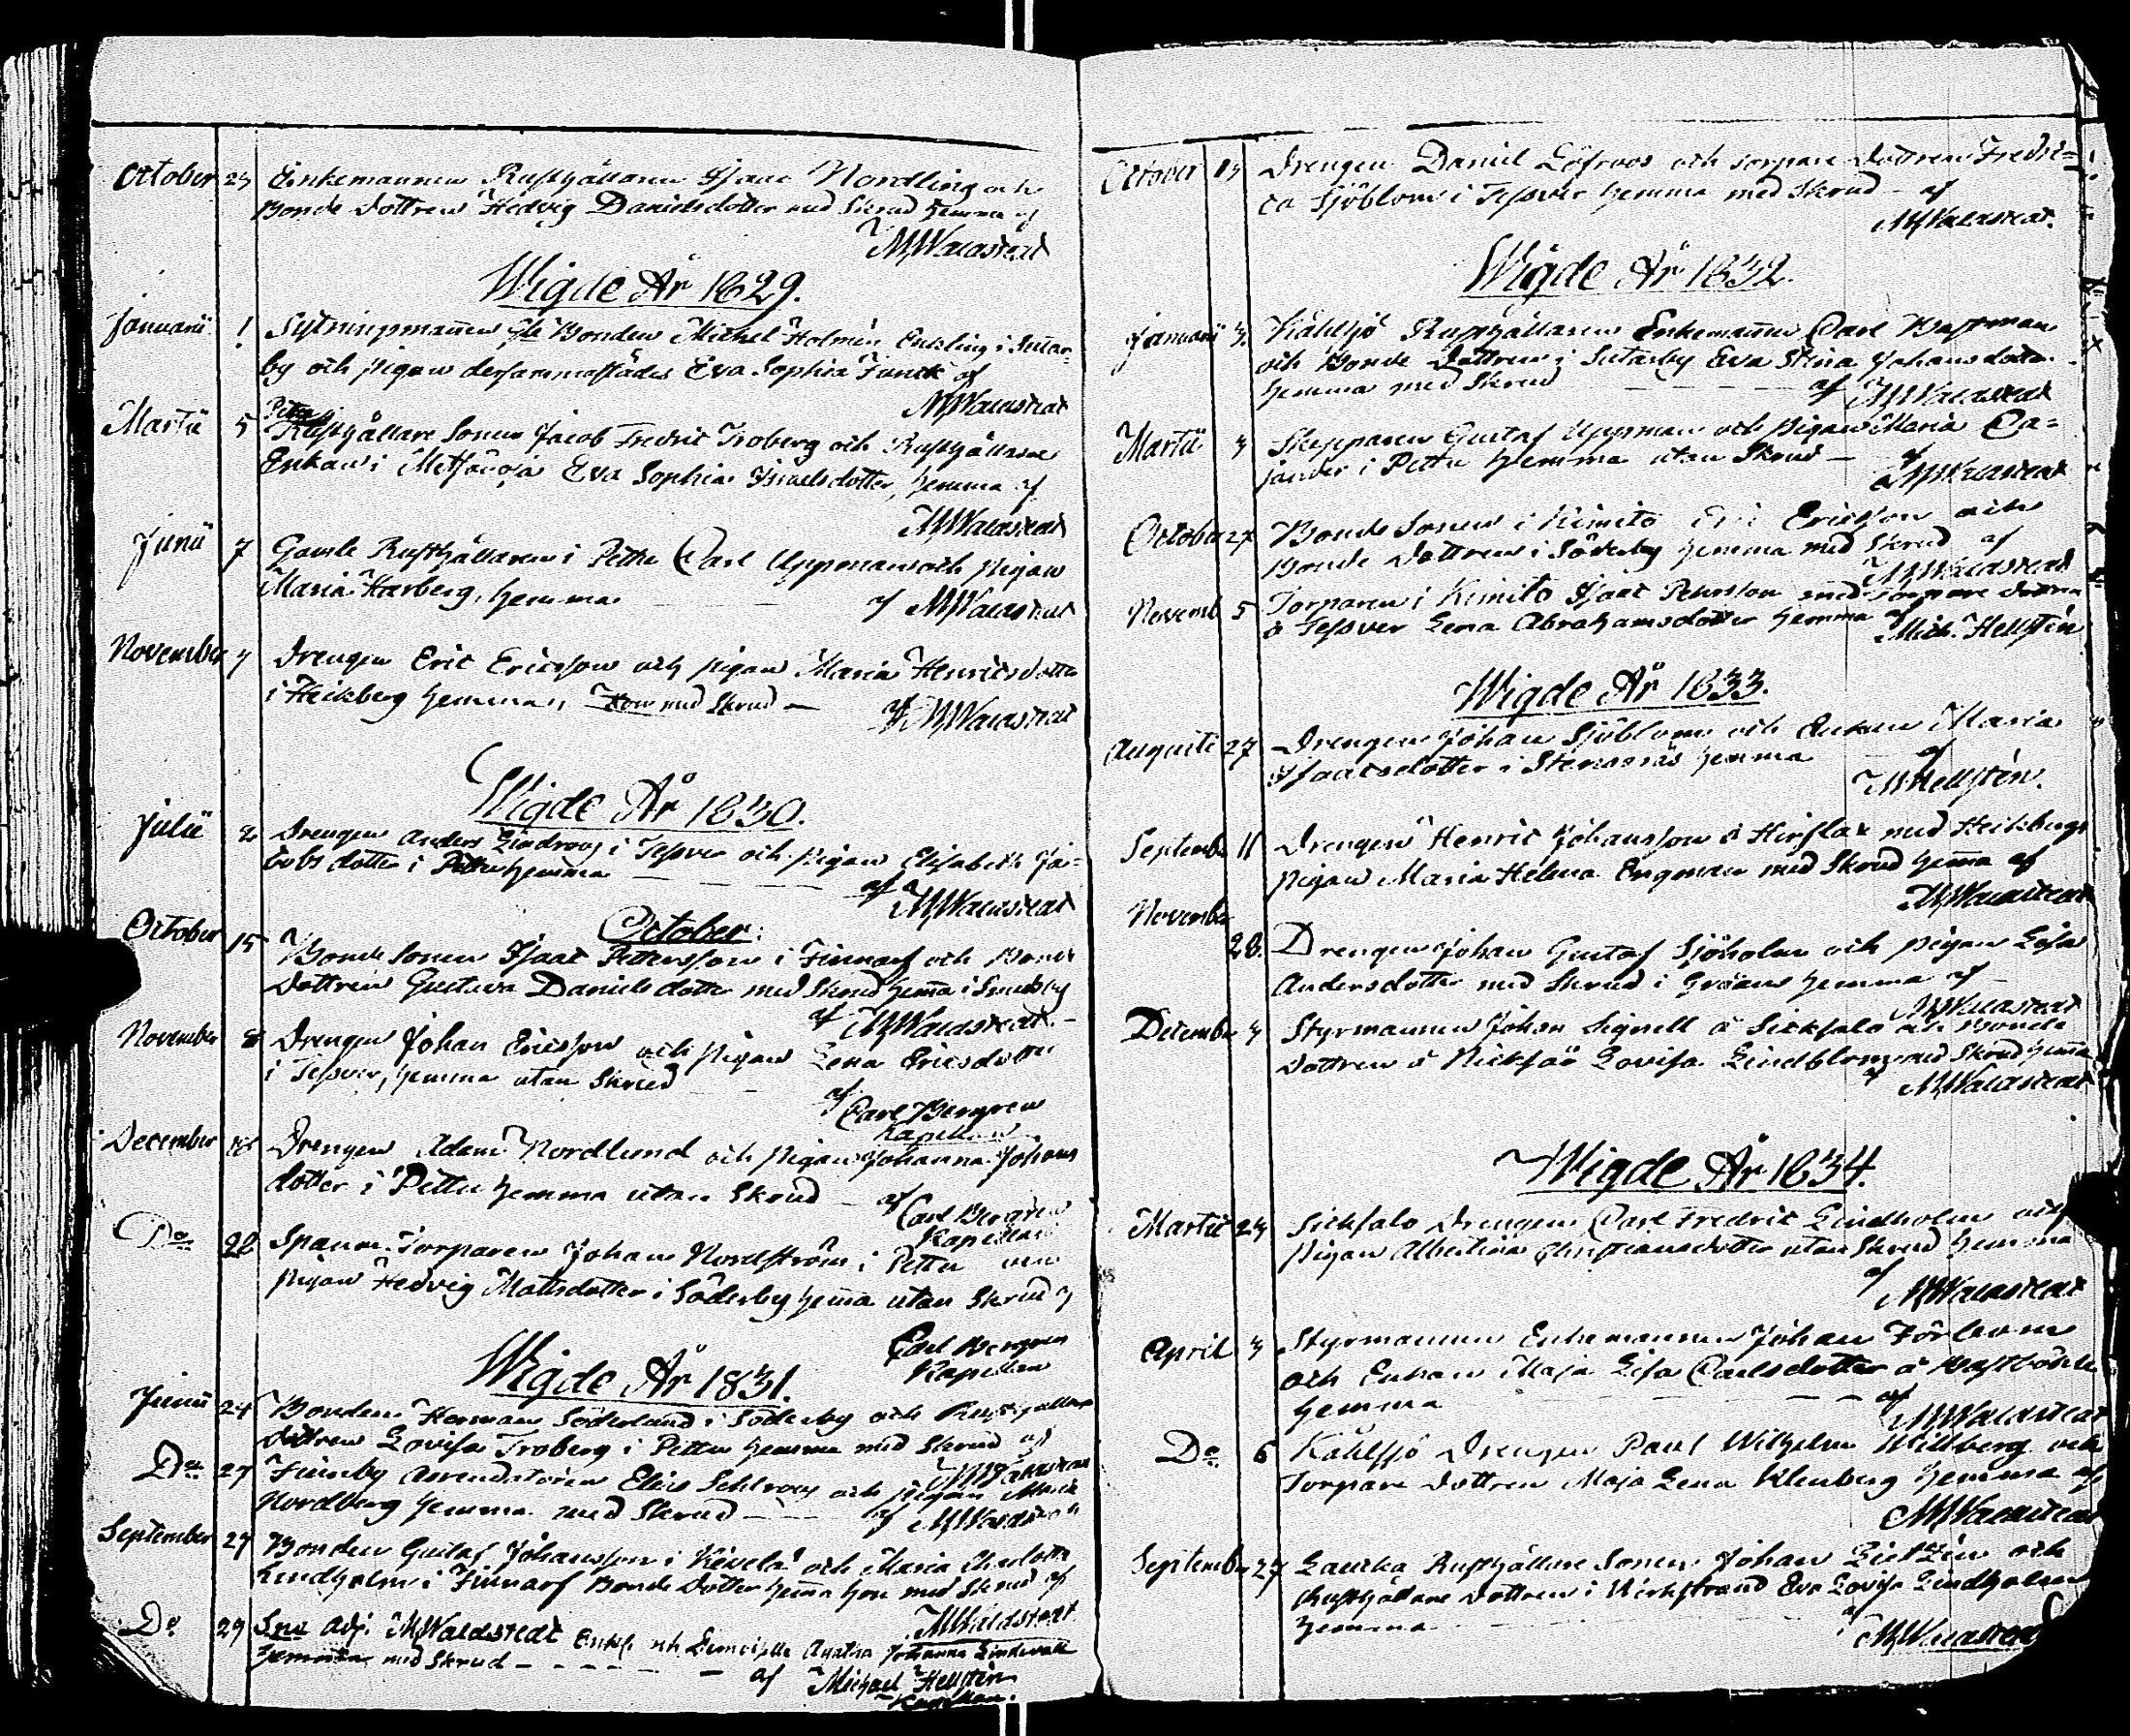 October 24 Enkemannen Rusthållaren Isaac Nordling och
Bonde Dottren Hedvig Danielsdotter med Skrud hemma af
M Waldstedt
Wigde År 1829.
Januarii 1 Sytningsmannen Bonden Michel Holmén Enkling i
by och pigan dersammastädes Eva Sophia Funck af
M Waldstedt
Pettu
Martii 5 Rusthållare Sonen Jacob Fredric Troberg och Rusthållare
Enkan i Eva Sophia Israelsdotter, hemma af
M Waldstedt
Junii 7 Gamle Rusthållaren i Pettu Carl Uppman och pigan
Maria Harberg, hemma af M Waldstedt
November 4 Drengen Eric Ericsson och pigan Maria Henricsdotter
i Heikberg hemma, med Skrud - af M Waldstedt
Wigde År 1830.
Julii 2 Drengen Anders Lindroos i Tessver och pigan Elisabeth Ja-
cobsdotter i Pettu hemma
af M Waldstedt
October:
October 15 Bonde Sonen Isaac Pettersson i Finnarf och Bonde
Dottren Gustava Danielsdotter med Skrud hemma i Smedsby
af M Waldstedt. -
November 8 Drengen Johan Ericsson och pigan Lena Ericsdotter
i Tessver, hemma utan Skrud
af Carl Bergren
Kapellan
December 18 Drengen Adam Nordlund och pigan Johanna Johans
dotter i Pettu hemma utan Skrud - af Carl Bergren
Kapellan
Do 28 Torparen Johan Nordström i Pettu och
pigan Hedvig Mattsdotter i Söderby hemma utan Skrud af
Carl Bergren
Kapellan
Wigde År 1831.
Junii 24 Bonden Herman Söderlund i Söderby och Rusthållare
Dottren Lovisa Troberg i Pettu hemma med Skrud af
M Waldstedt
Do 27 Finnby Arrendatoren Elias Sehlroos och pigan Maria
Nordberg hemma med Skrud - - af M Waldstedt
September 27 Bonden Gustaf Johansson i Kevela och Maria Charlotta
Lindholm i Finnarf Bonde Dotter hemma hon med Skrud af
M Waldstedt
Do 29 Adj. M Waldstedt och Demoiselle Agatha Johanna Lindevall
hemma med Skrud - - - - af Michael Hellstén
Kapellan.
October Drengen Daniel Löfroos och Torpare Dottren Fredri=
ca Sjöblom i Tessver hemma med Skrud - af
M Waldstedt.
Wigde År 1832.
Januarii 3 Kählsjö Rusthållaren Enkemannen Carl
och Bonde Dottren i Eva Stina Johansdotter
hemma med Skrud - - - af M Waldstedt
Martii 4 Skepparen Gustaf Uppman och pigan Maria Ca=
jander i Pettu hemma utan Skrud - af
M Waldstedt
October 27 Bonde Sonen i Kimito Eric Ericsson och
Bonde Dottren i Söderby hemma med Skrud af
M Waldstedt
Novemb 5 Torparen i Kimito Isaac Petersson med Torpare Dottren
å Tessver Lena Abrahamsdotter hemma af Mich. Hellstén
Wigde År 1833.
Augusti 27 Drengen Johan Sjöblom och Enkan Maria
Isaacsdotter i Stenasnäs hemma af
M Hellstén.
September 11 Drengen Henric Johansson å med Heikbergs
pigan Maria Helena Engman med Skrud hemma af
M Waldstedt
November
28. Drengen Johan Gustaf Sjöholm och pigan Lisa
Andersdotter med Skrud i hemma af
M Waldstedt
December 4 Styrmannen Johan Signell å Sicksalo och Bonde
Dottren å Lovisa Lindblom med Skrud hemma
af M Waldstedt
Wigde År 1834.
Martii 24 Sicksalo Drengen Carl Fredric Lindholm och
pigan Albertina Christiansdotter utan Skrud hemma
af M Waldstedt
April 4 Styrmannen Enkemannen Johan
och Enkan Maja Lisa Carlsdotter å
hemma - - - af
M Waldstedt
Do 6 Kählsjö Drengen Paul Wilhelm Willberg och
Torpare Dottren Maja Lena Klenberg hemma af
M Waldstedt
September 27 Rusthållare Sonen Johan och
Rusthållare Dottren i Eva Lovisa Lindholm
hemma - - - af
M Waldstedt